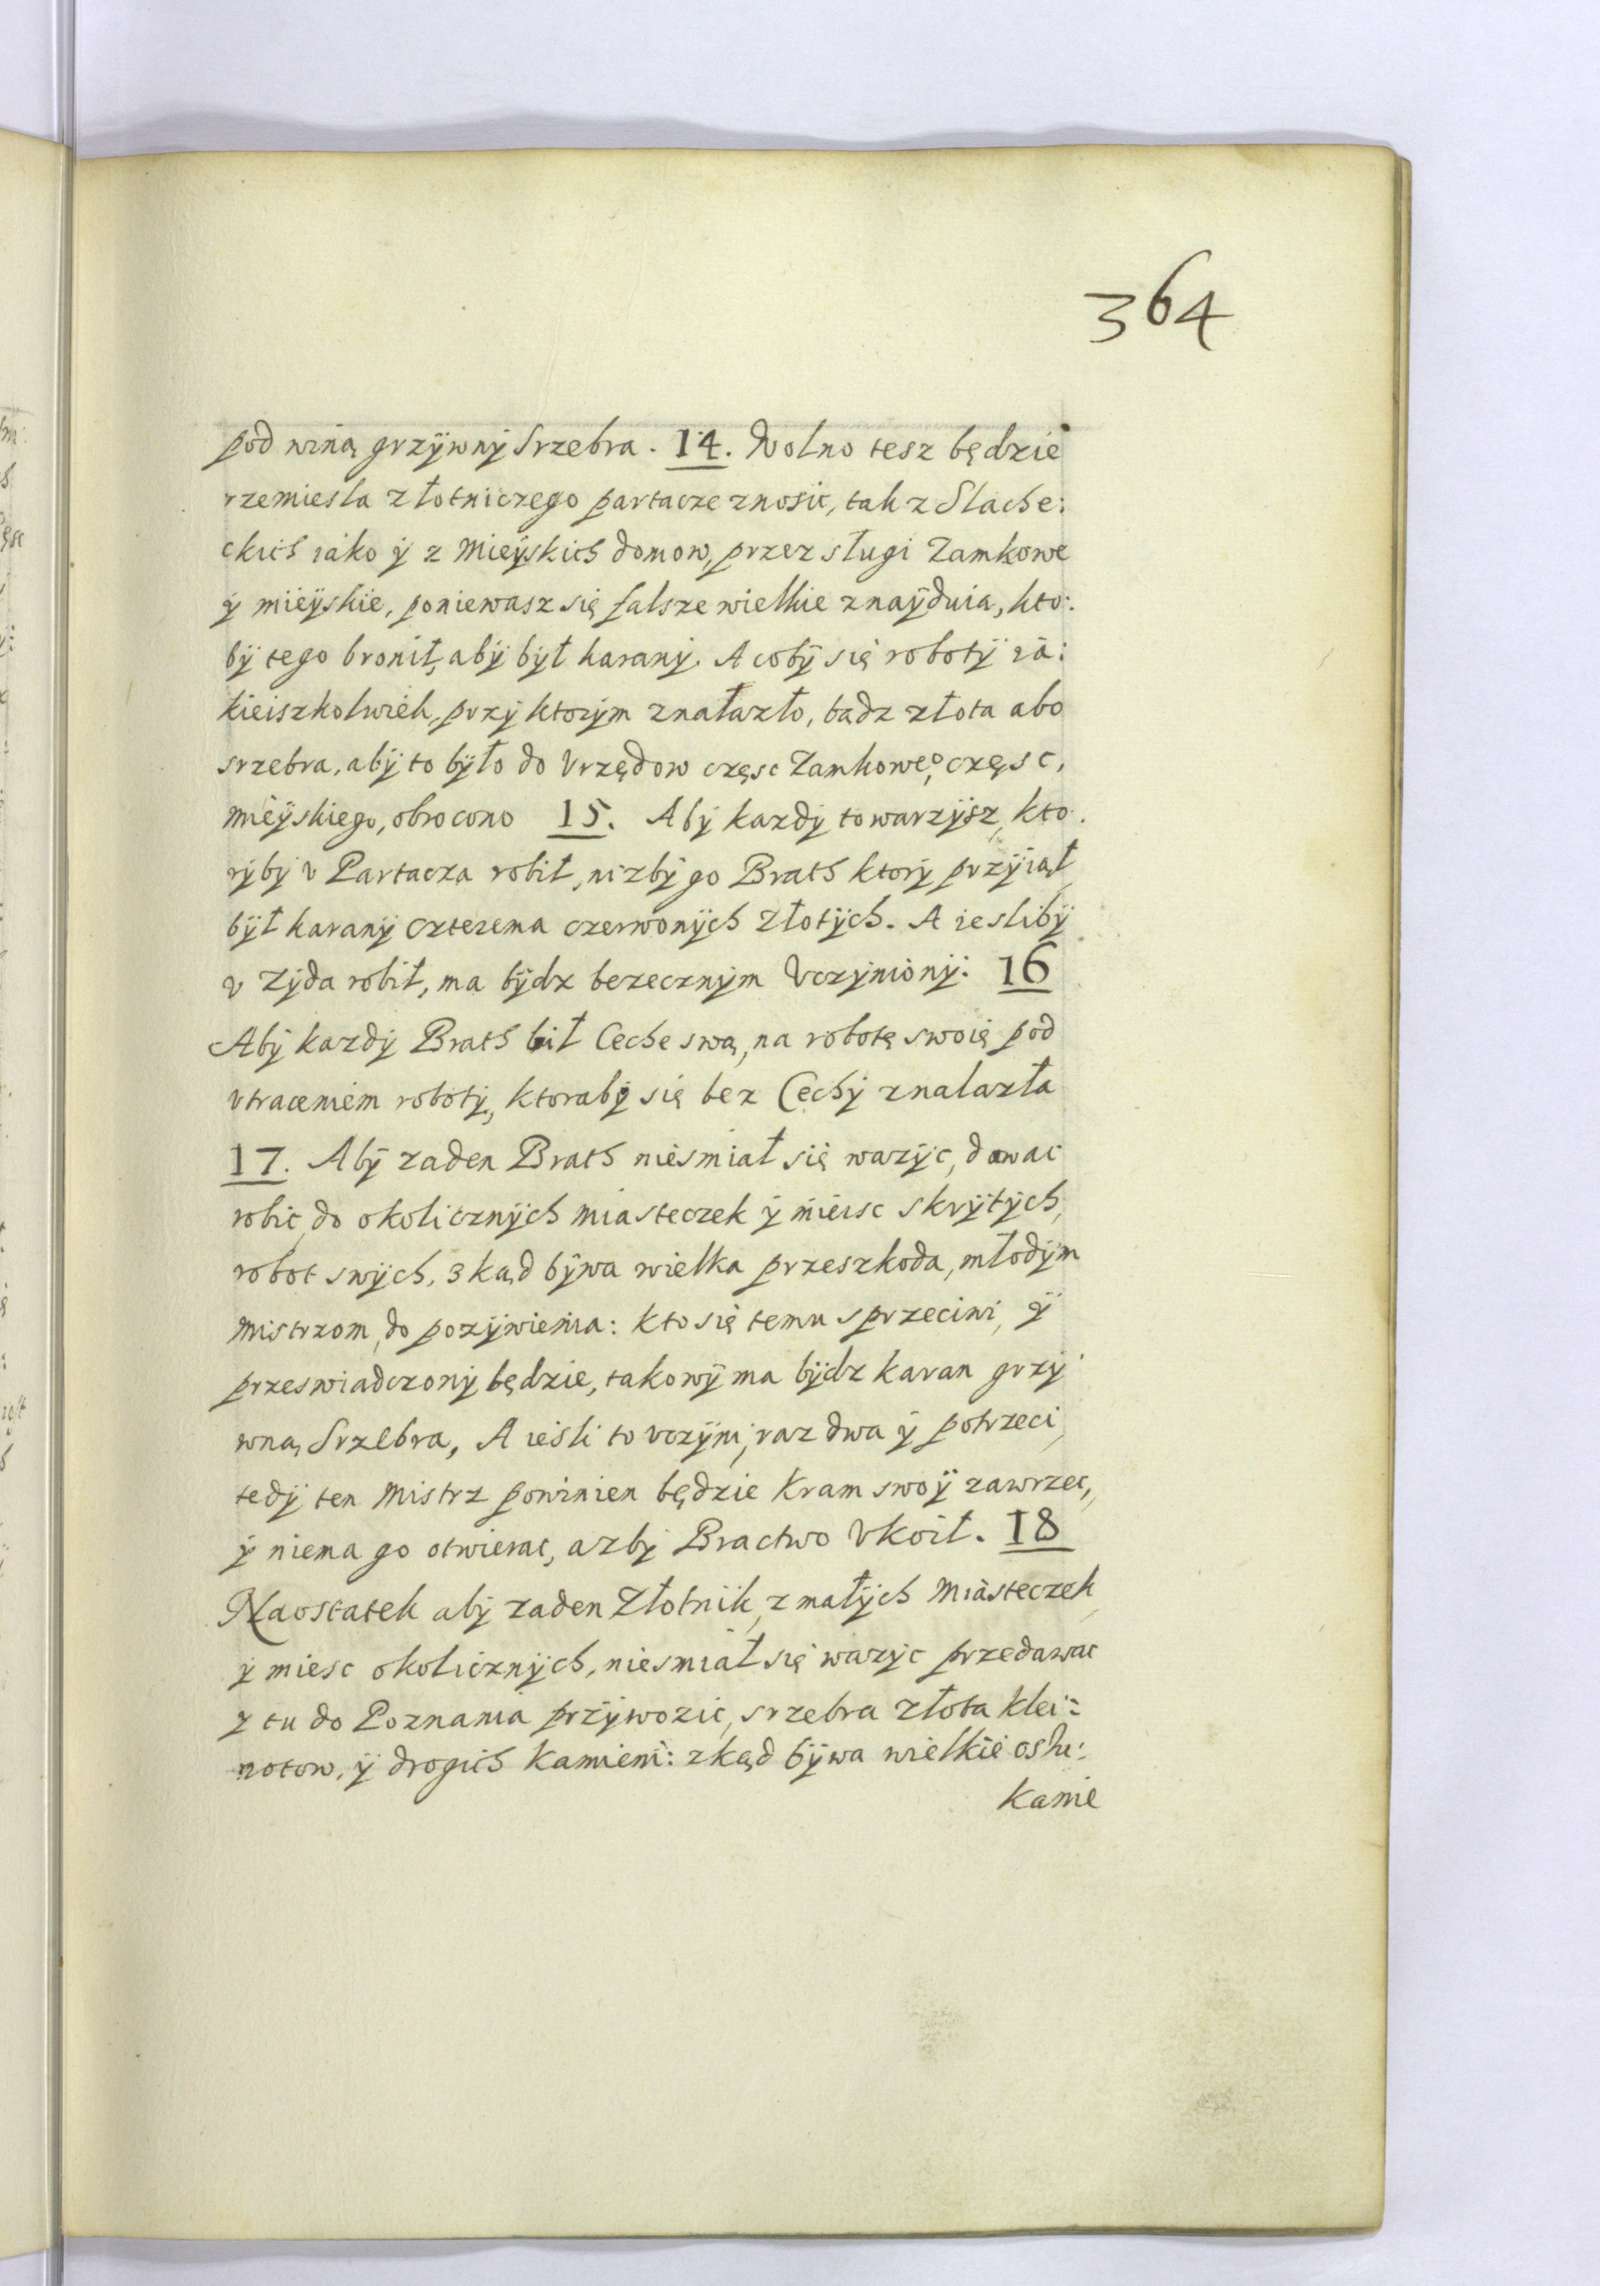 364
pod winą grzÿwnÿ Srzebra. 14. Wolno tesz będzie
rzemiesla złotniczego partacze znosic, tak z Slache:
ckich iako ÿ z Mieÿskich domow, przez sługi Zamkowe
ÿ mieÿskie, poniewasz się falsze wielkie znaÿduia, kto:
bÿ tego bronił, abÿ bÿł karanÿ. A cobÿ się robotÿ ia:
kieiszkolwiek, przÿ ktorÿm znałazło, badz złota abo
srzebra, abÿ to bÿło do Vrzędow częsc Zamkoweo, częsc,
mieÿskiego, obrocono 15. Abÿ kazdÿ towarzÿsz, kto.
rÿbÿ v Partacza robił, nizbÿ go Brath ktorÿ przÿiął,
bÿł karanÿ czterema czerwonÿch Złotÿch. A ieslibÿ
v Zÿda robił, ma bÿdz bezecznÿm Vczÿnionÿ. 16
Abÿ kazdÿ Brath bił Ceche swą, na robotę swoię pod
vtraceniem robotÿ, ktorabÿ się bez Cechÿ znalazła
17. Abÿ zaden Brath niesmiał się wazÿc, dawac
robic, do okolicznÿch miasteczek ÿ mieisc skrÿtÿch,
robot swÿch, skąd bÿwa wielka przeszkoda, młodÿm
Mistrzom, do pozÿwienia: kto się temu sprzeciwi, ÿ
przeswiadczonÿ będzie, takowÿ ma bÿdz karan grzÿ
wną Srzebra, A iesli to vczÿni, raz dwa ÿ potrzeci,
tedÿ ten Mistrz powinien będzie kram swoÿ zawrzec,
ÿ niema go otwierac, azbÿ Bractwo Vkoił. 18
Naostatek abÿ zaden Złotnik, z małÿch Miasteczek,
ÿ miesc okolicznÿch, niesmiał się wazÿc przedawac
ÿ tu do Poznania przÿwozic, srzebra złota klei:
notow, ÿ drogich kamieni: zkąd bÿwa wielkie oshu:
kanie